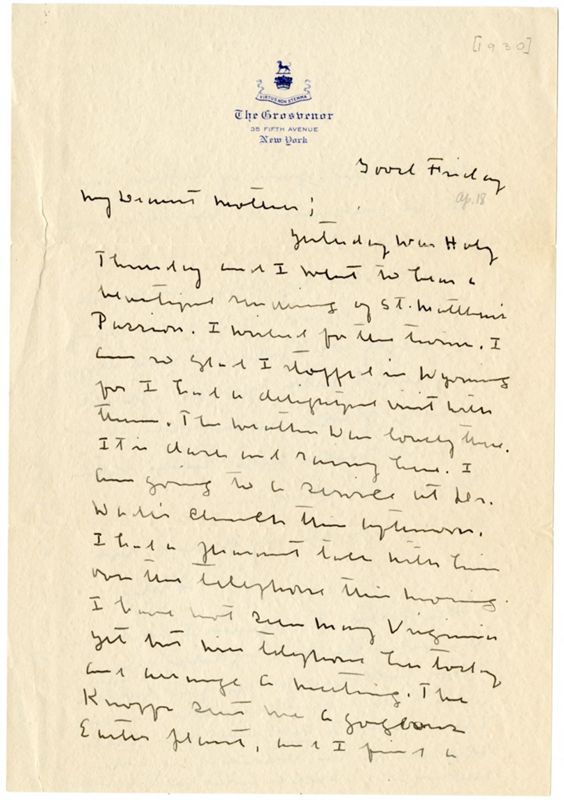 [1930]
VIRTUS NON STEMMA
The Grosvenor
35 FIFTH AVENUE
New York
Good Friday
Ap. 18
My Dearest Mother;
Yesterday was Holy
Thursday and I went to hear a
beautiful rendering of St. Matthew's
Passion. I wished for the twins. I
am so glad I stopped in Wyoming
for I had a delightful visit with
them. The weather was lovely there.
It is dark and rainy here. I
am going to a service at Dr.
church this afternoon.
I had a pleasant talk with him
over the telephone this morning.
I have not seen Mary Virginia
yet but will telephone her today
and arrange a meeting. The
Knopfs sent me a gorgeous
Easter plant, and I found a